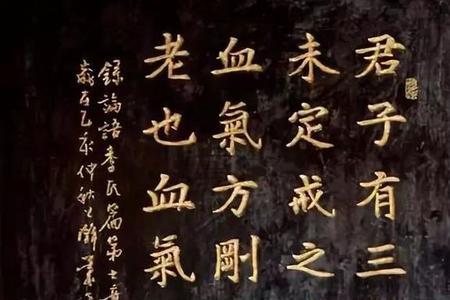 君子有三
未定戒之
血氣方剛
老也血氣
錄論語季氏篇第七章
歲在乙未仲秋